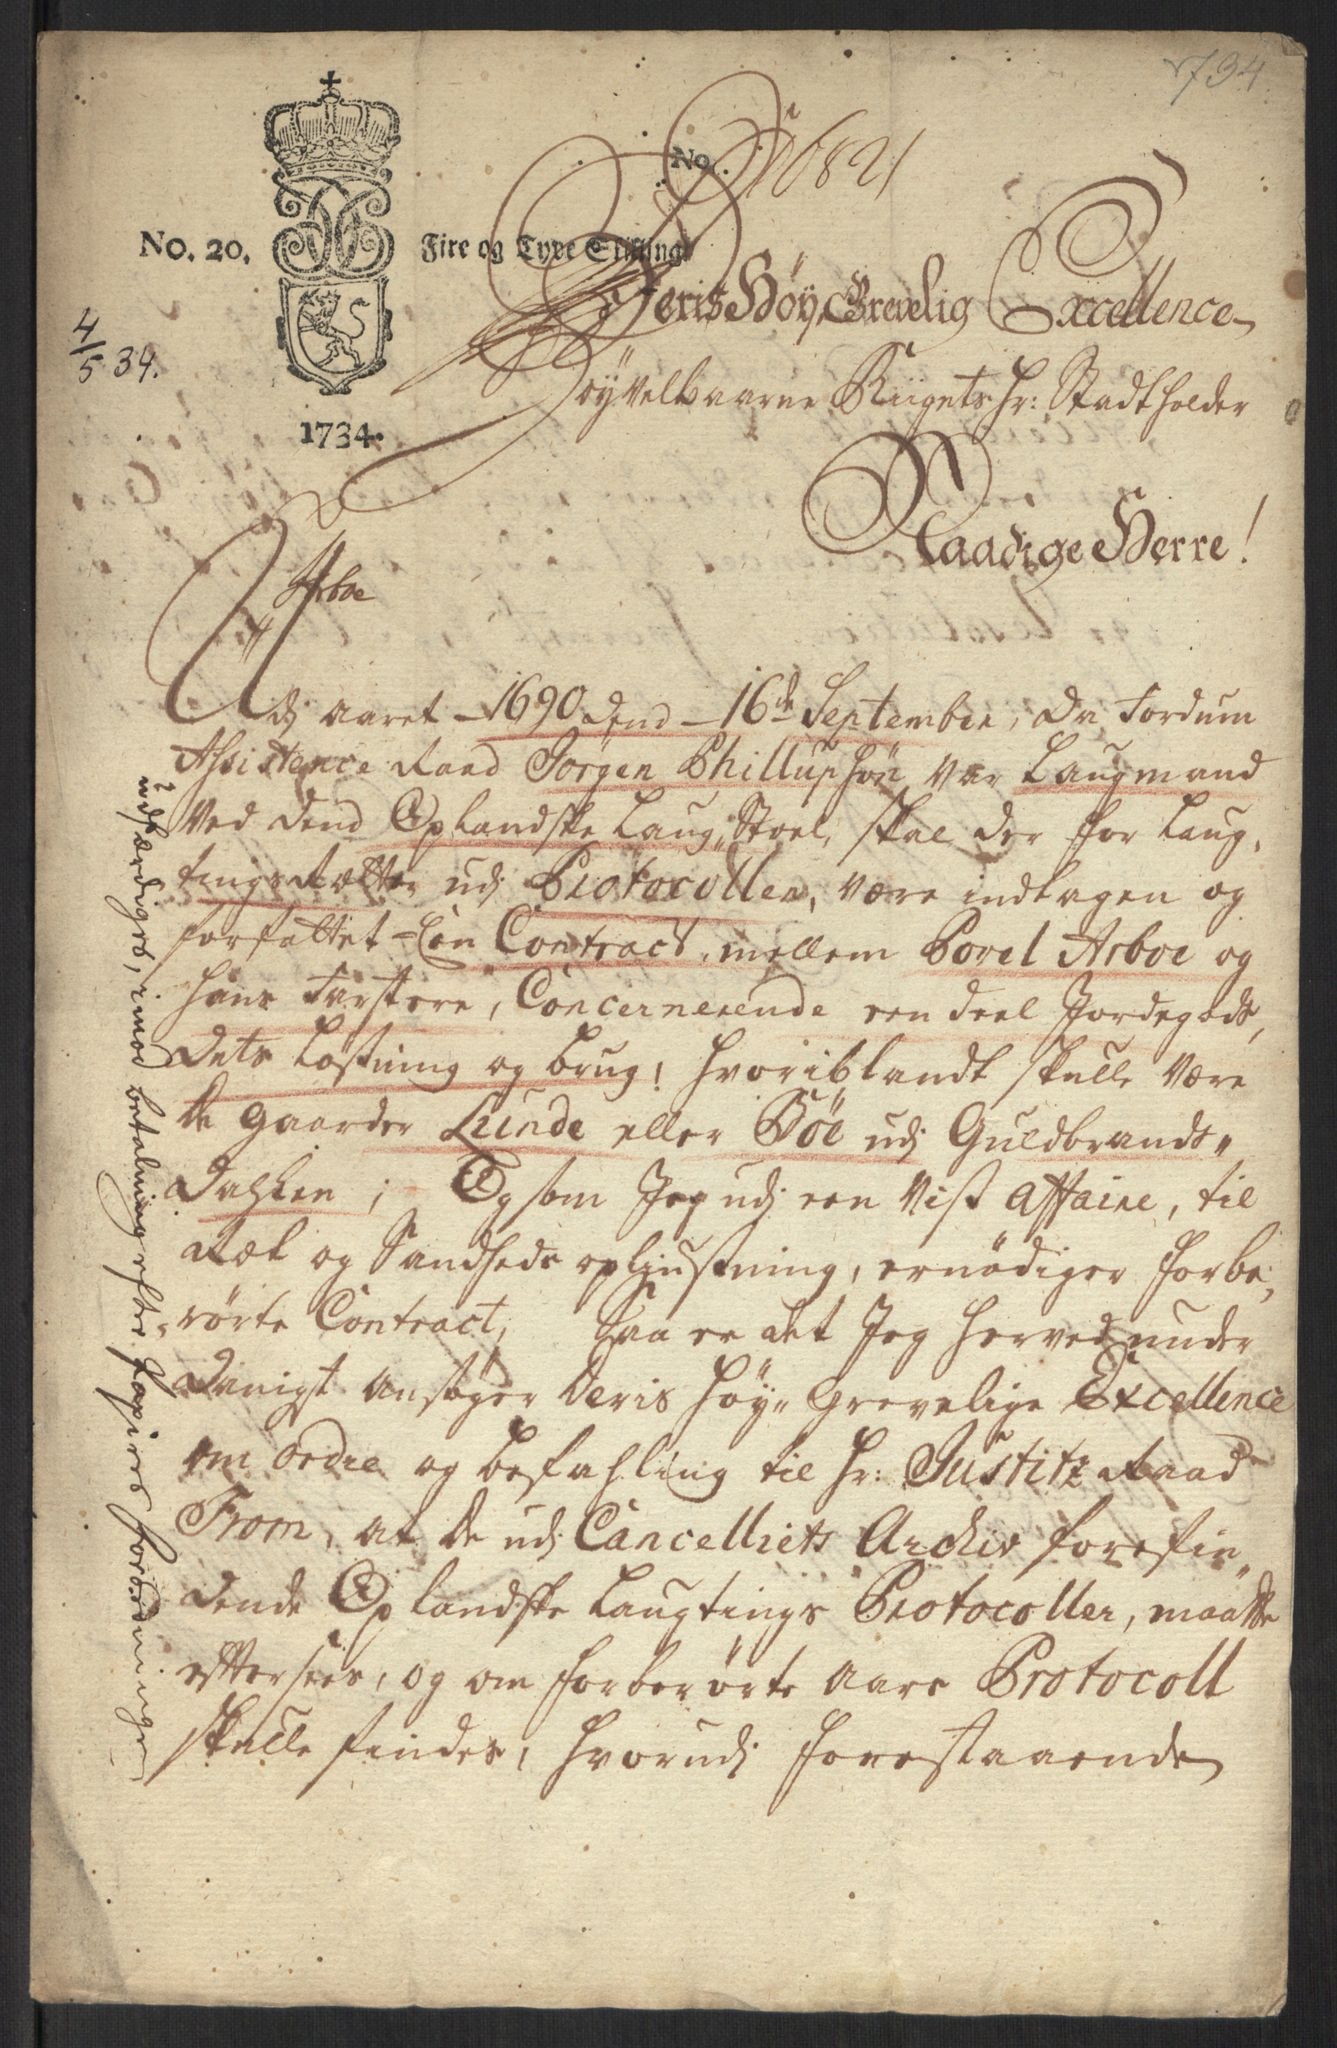 1734
No. 1682
No. 20.
Fire og Tyve Skilling
4/5 34.
1734.
Deris Höy Grevelig Excellence
Höyvelbaarne Riigets Hr: Stadtholder
Naadige Herre!
Arboe
Udj aaret 1690 dend 16de September, da Fordum
Assistence Raad Jörgen Phillupsön var Laugmand
ved dend Oplandske Laug„Stoel, skal der for Laug„
tingsRetten udj Protocollen, være indtagen og
forfattet Een Contract, mellem Povel Arboe og
hans Farstore, Concernerende een deel Jordegods,
dets Losning og brug! hvoriblandt skulle være
de gaarder Lunde eller Böe udj Guldbrands„
dahlen; Og som Jeg udj een vist affaire, til
Ræt og Sandheds opljusning, ernödiger forbe„
rörte Contract, Saa er det Jeg herved under
danigst ansöger Deris höy„ Grevelige Excellence
om ordre og befahling til hr: Justitz Raad
From, at de udj Cancelliets Archiv forefin„
dende Oplandske Laugtings Protocoller, maatte
eftersees, og om forberörte aars Protocoll
skulle findes, hvorudj forestaaende
udfærdiges, imod betalning efter Papiirs forordningen